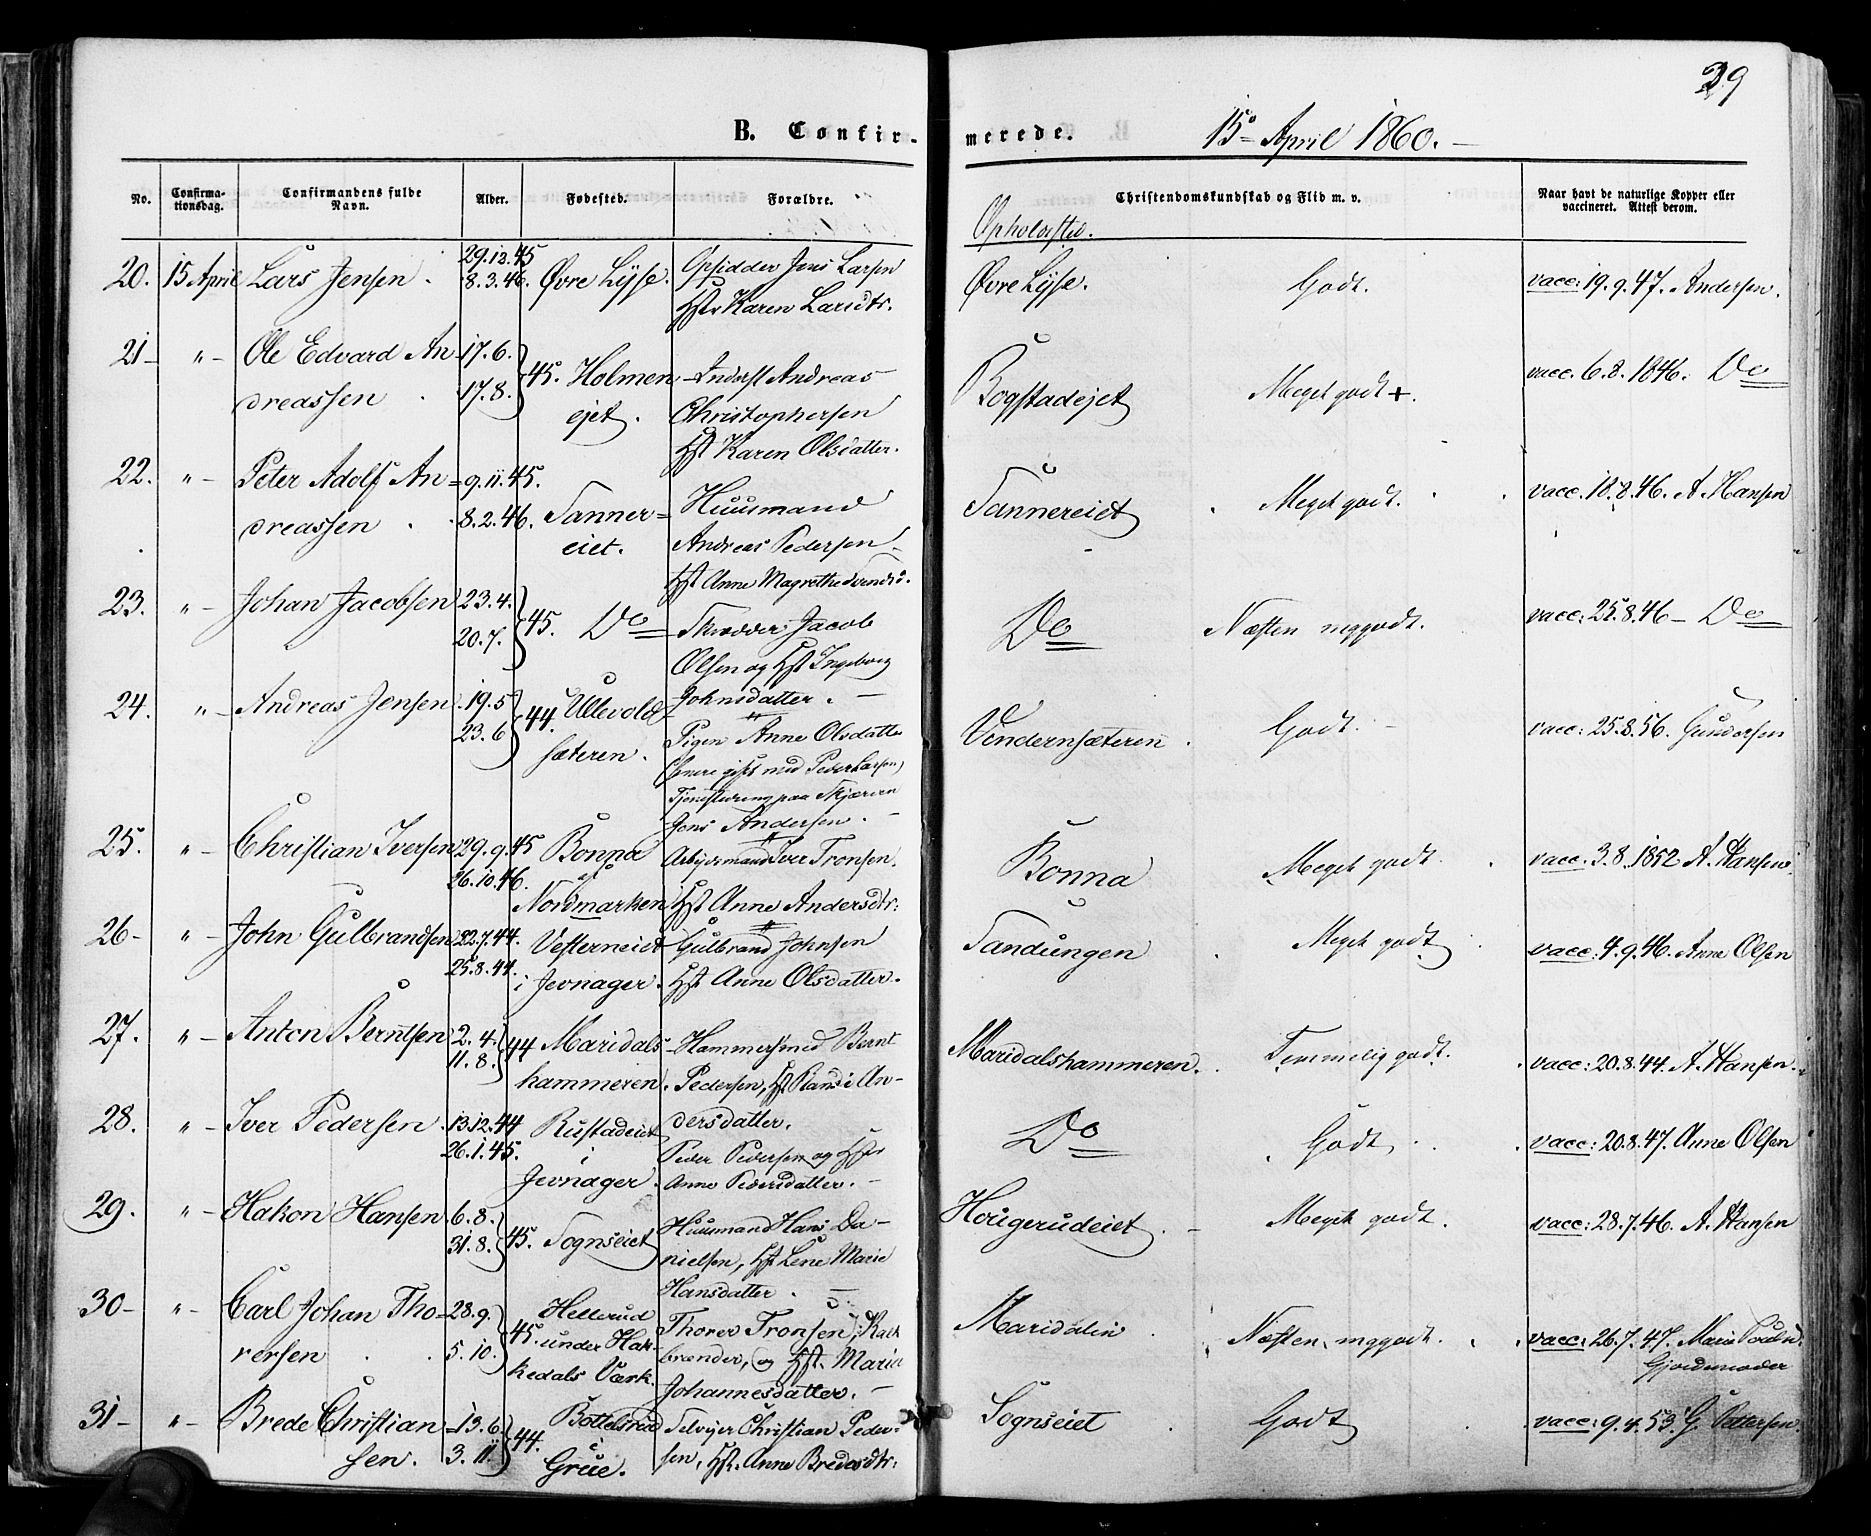 29
B. Confir-
merede.
15de April 1860.
No.
Confirma-
tionsdag.
Confirmandens fulde
Navn.
Alder.
Fødested.
Forældre.
Christendomskundskab og Flid m. v.
Naar havt de naturlige Kopper eller
vaccineret. Attest derom.
Opholdsted.
20. 15 April Lars Jensen.
29.12.45
8.3.46.
Øvre Lysse.
Opsidder Jens Larsen
Hst Karen Larsdtr.
Øvre Lysse.
Godt.
vacc: 19.9.47. Andersen.
21- "- Ole Edvard An-
dreassen.
17.6.
17.8.
45.
Holmen
ejet.
Inderst Andreas
Christophersen
Hst Karen Olsdatter.
Bogstadejet
Meget godt +.
vacc. 6.8.1846. Do
22. "- Peter Adolf An=
dreassen.
9.11.45.
8.2.46.
Sanner=
eiet.
Huusmand
Andreas Pedersen
Hst Anne Magrethe Svendsd.
Sannereiet
Meget godt.
vacc. 18.8.46. A. Hansen
23. "- Johan Jacobsen
23.4.
20.7.
45.
Do
Skrædder Jacob
Olsen og Hst Ingeborg
Johnsdatter.
Do
Næsten mggodt.
vacc: 25.8.46 - Do
24. "- Andreas Jensen
19.5
23.6
44.
Ullevold
sæteren.
Pigen Anne Olsdatter
(senere gift med Peder Larsen)
Tjenestedreng paa Skjærven
Jens Andersen.
Vindernsæteren.
Godt.
vacc: 25.8.56. Gundersen
25. "- Christian Iversen
29.9.45
26.10.46.
Bonna
Nordmarken
Arbeidsmand Iver Tronsen.
Hst Anne Andersdtr:
Bonna
Meget godt.
vacc. 3.8.1852 A. Hansen
26- "- John Gulbrandsen
22.7.44.
25.8.44.
Vesterneiet
i Jevnager.
Gulbrand Johnsen
Hst Anne Olsdatter.
Sandungen
Meget godt
vacc: 4.9.46. Anne Olsen
27. "- Anton Berntsen
2.4.
11.8.
44
Maridals-
hammeren.
Hammersmed Bernt
Pedersen, Hst Randi An-
dersdatter.
Maridalshammeren.
Temmelig godt.
vacc: 20.8.44. A. Hansen.
28. "- Iver Pedersen
13.12.44
26.1.45.
Rustadeiet
i
Jevnager.
Peder Pedersen og Hst
Anne Pedersdatter.
Do
Godt
vacc: 20.8.47. Anne Olsen
29. "- Hakon Hansen
6.8.
31.8.
45.
Sognseiet
Huusmand Hans Da-
nielsen, Hst Lene Marie
Hansdatter.
Hougerudeiet.
Meget godt.
vacc: 28.7.46. A. Hansen
30- "- Carl Johan Tho=
rersen
28.9.
5.10.
45.
Hellerud
under Hak-
kedals Værk.
Thorer Tronsen, Kalk
brænder, og Hst. Marie
Johannesdatter.
Maridalen
Næsten mggodt.
vacc: 26.7.47. Marie
Gjordemoder
31- "- Brede Christian=
sen.
13.6.
3.11.
44.
Bottelsrud
Grue.
Selveier Christian Peder-
sen, Hst. Anne Bredesdtr:
Sognseiet
Godt
vacc: 9.4.53. G. Pettersen.